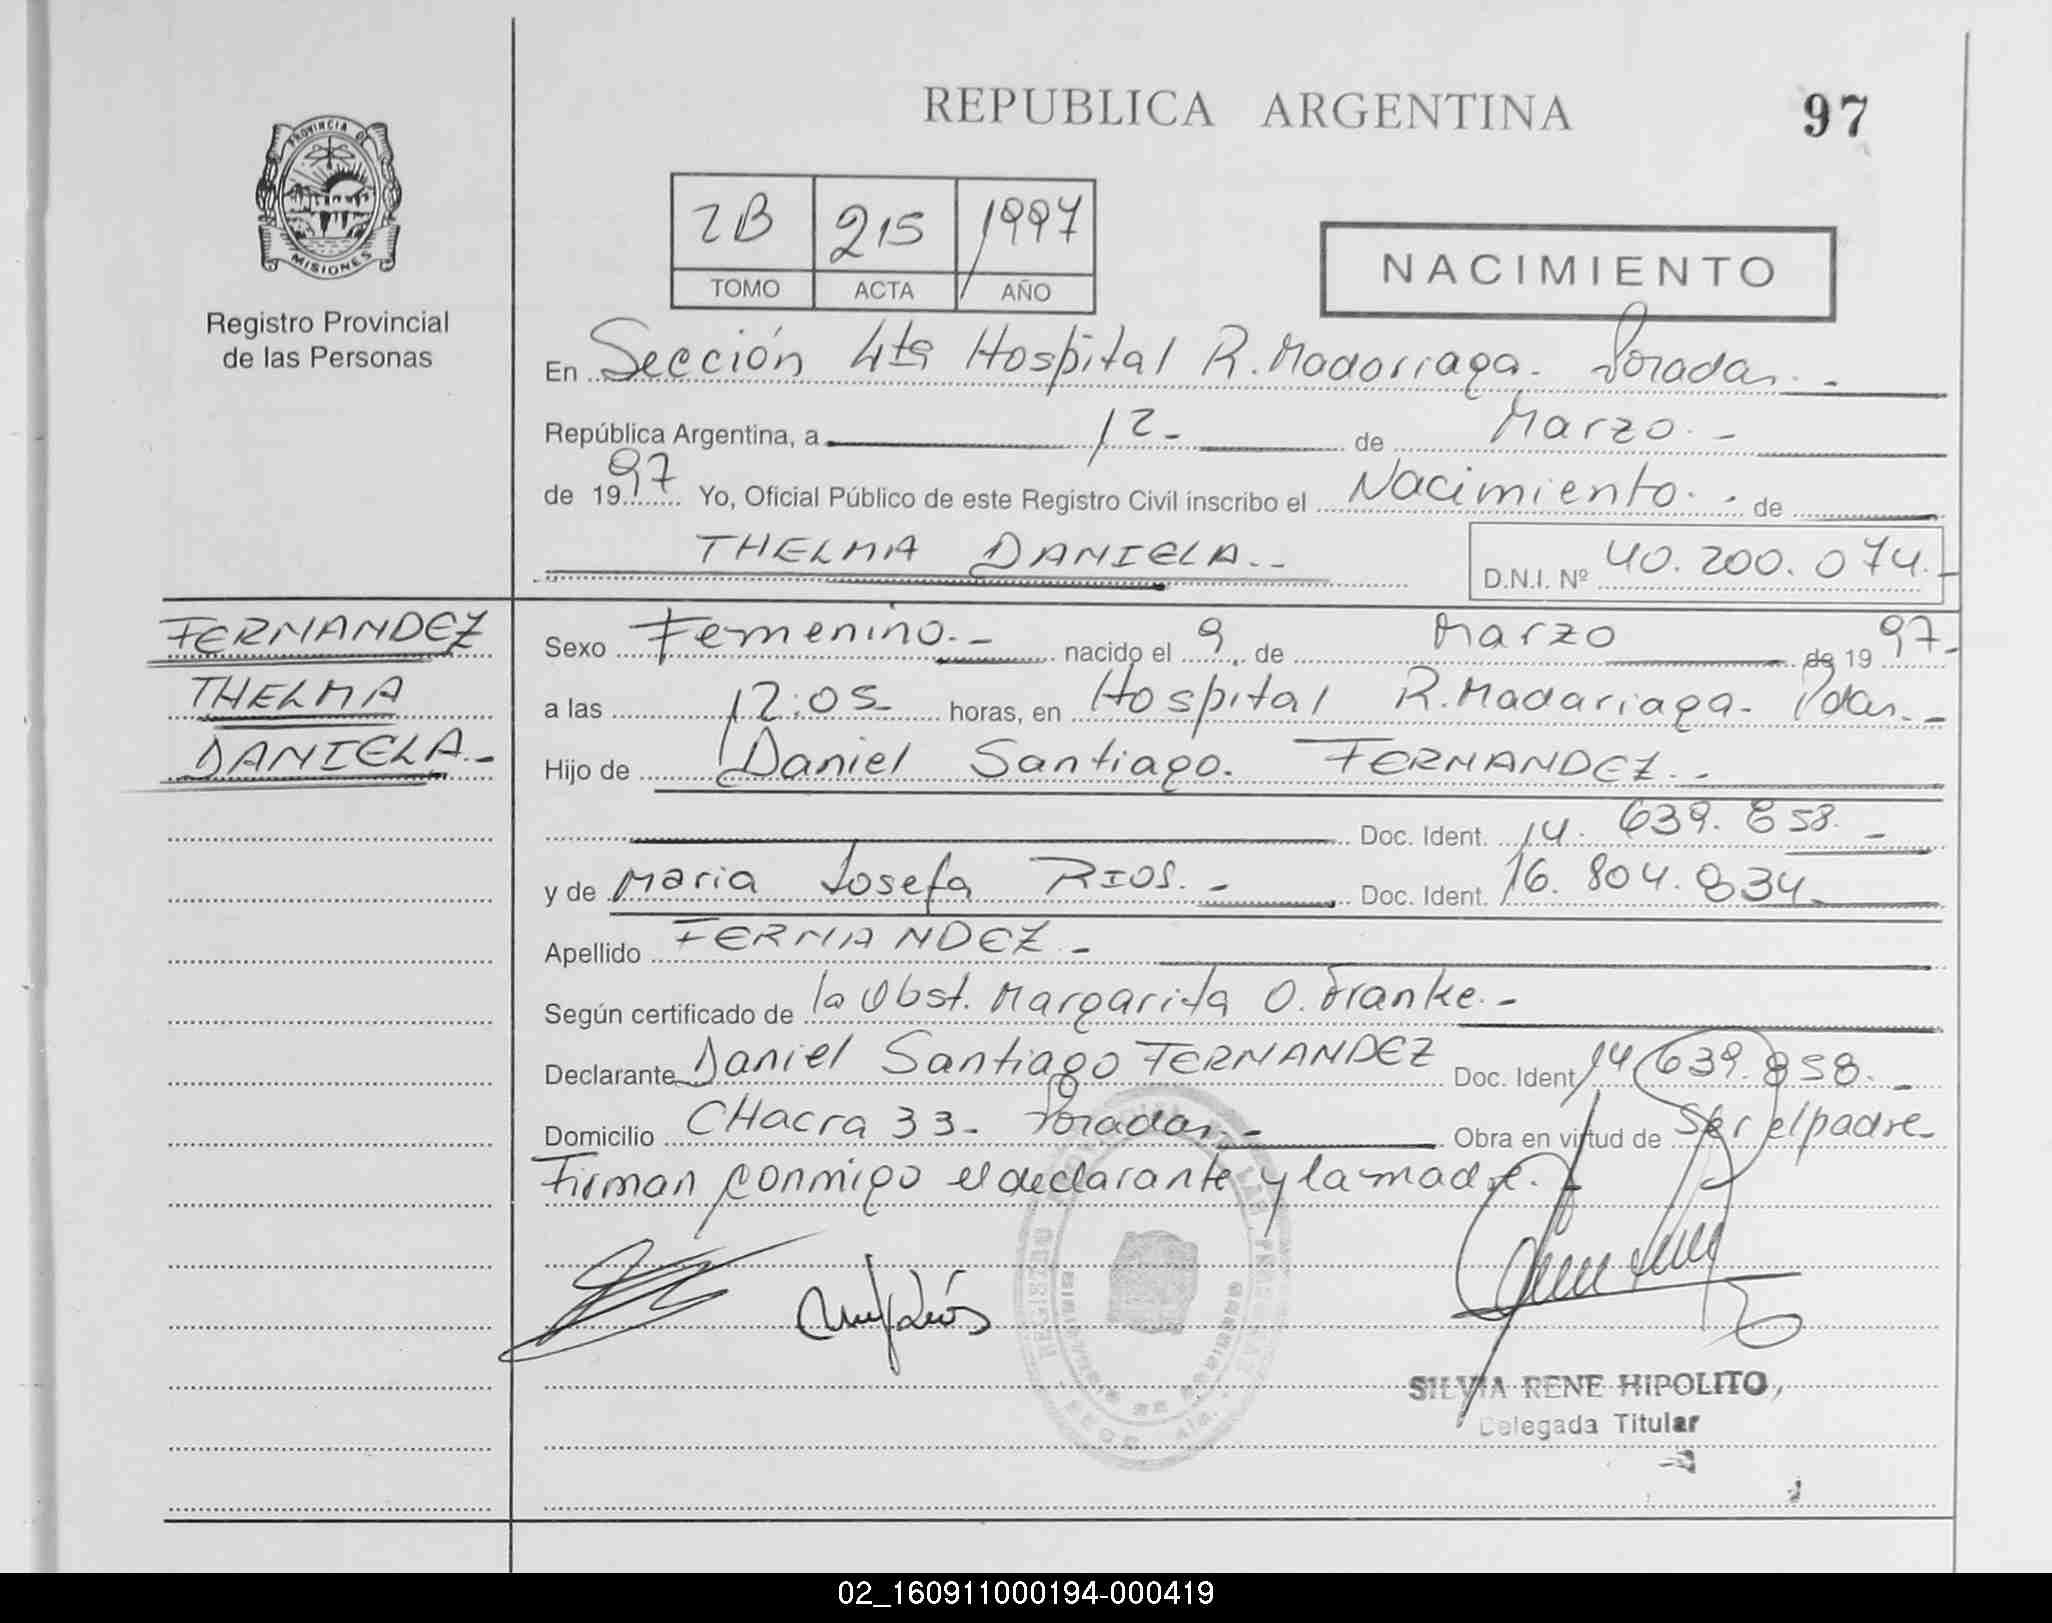 REPUBLICA ARGENTINA
97
PROVINCIA DE
MISIONES
Registro Provincial
de las Personas
2B 215 1997
TOMO ACTA AÑO
NACIMIENTO
En Sección 4ta Hospital R. Madariaga. Posadas. -
República Argentina, a 12 - de Marzo. -
de 1997 Yo, Oficial Público de este Registro Civil inscribo el Nacimiento. - de
THELMA DANIELA.-
D.N.I. Nº 40.200.074.-
FERNANDEZ
THELMA
DANIELA.-
Sexo Femenino.- nacido el 9 de Marzo de 1997.-
a las 12:05 horas, en Hospital R. Madariaga. Pdas.-
Hijo de Daniel Santiago. FERNANDEZ.-
Doc. Ident. 14. 639. 858. -
y de Maria Josefa RIOS. - Doc. Ident. 16. 804. 834.
Apellido FERNANDEZ -
Según certificado de la Obst. Margarita O. Franke.-
Declarante Daniel Santiago FERNANDEZ Doc. Ident. 14 639.858. -
Domicilio CHacra 33- Posadas.- Obra en virtud de Ser el padre
Firman conmigo el declarante y la madre.-
SILVIA RENE HIPOLITO
Delegada Titular
02_160911000194-000419